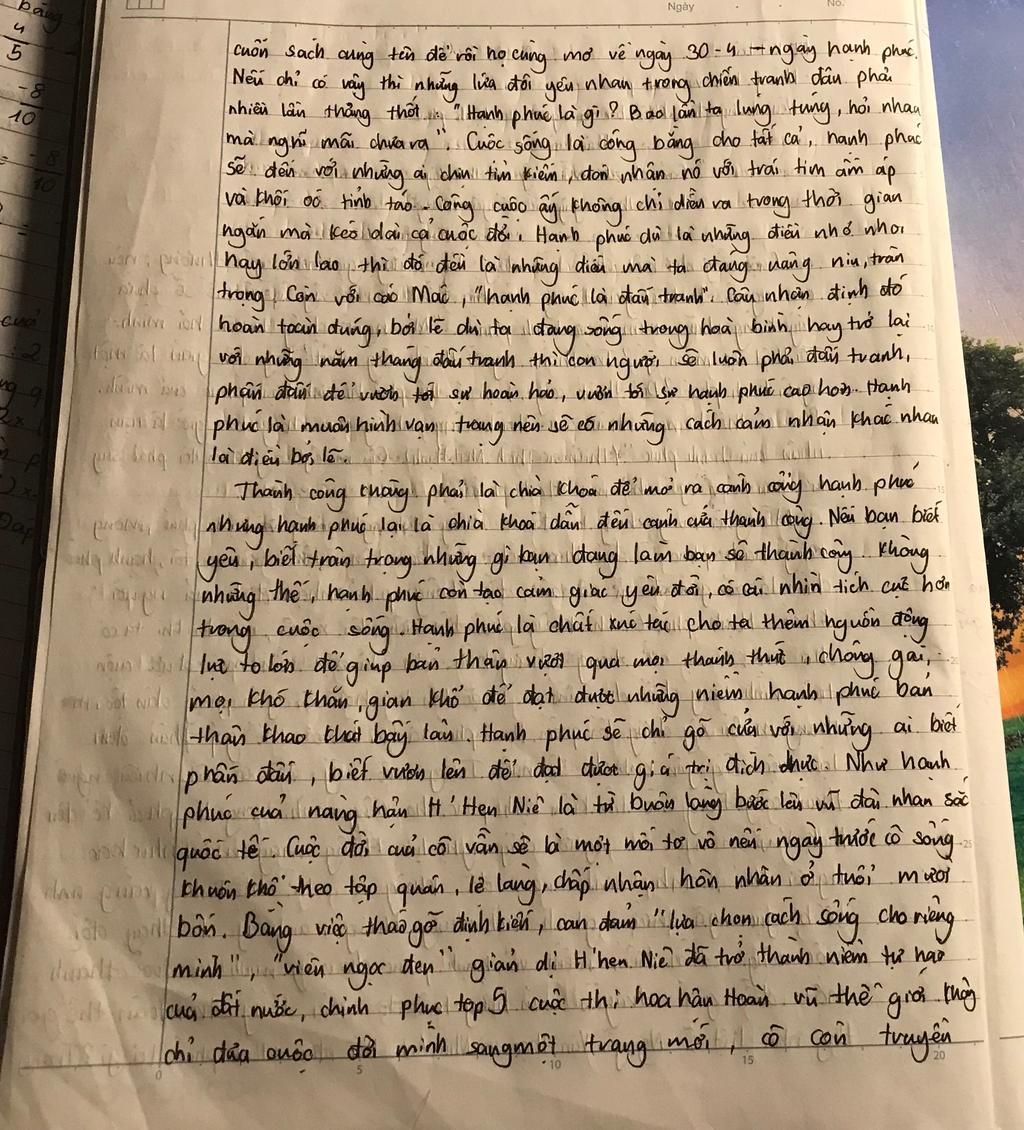 Ngày . . No.
cuốn sách cùng tên để rồi họ cùng mơ về ngày 30-4 - ngày hạnh phúc.
Nếu chỉ có vậy thì những lứa đôi yêu nhau trong chiến tranh đâu phải
nhiều lần thảng thốt : "Hạnh phúc là gì? Bao lần ta lúng túng, hỏi nhau
mà nghĩ mãi chưa ra". Cuộc sống là công bằng cho tất cả, hạnh phúc
sẽ đến với những ai chịu tìm kiếm, đón nhận nó với trái tim ấm áp
và khối óc tỉnh táo. Công cuộc ấy không chỉ diễn ra trong thời gian
ngắn mà kéo dài cả cuộc đời. Hạnh phúc dù là những điều nhỏ nhoi
hay lớn lao thì đó đều là những điều mà ta đáng nâng niu, trân
trọng. Còn với các Mác, "hạnh phúc là đấu tranh". Câu nhận định đó
hoàn toàn đúng, bởi lẽ dù ta đang sống trong hoà bình hay trở lại
với những năm tháng đấu tranh thì con người sẽ luôn phải đấu tranh,
phấn đấu để vươn tới sự hoàn hảo, vươn tới sự hạnh phúc cao hơn. Hạnh
phúc là muôn hình vạn trạng nên sẽ có những cách cảm nhận khác nhau
là điều bởi lẽ.
Thành công không phải là chìa khoá để mở ra cánh cổng hạnh phúc
nhưng hạnh phúc lại là chìa khoá dẫn đến cánh cửa thành công. Nếu bạn biết
yêu, biết trân trọng những gì bạn đang làm bạn sẽ thành công. Không
những thế, hạnh phúc còn tạo cảm giác yêu đời, có cái nhìn tích cực hơn
trong cuộc sống. Hạnh phúc là chất xúc tác cho ta thêm nguồn động
lực to lớn để giúp bản thân vượt qua mọi thách thức, chông gai,
mọi khó khăn, gian khổ để đạt được những niềm hạnh phúc bản
thân khao khát bấy lâu. Hạnh phúc sẽ chỉ gõ cửa với những ai biết
phấn đấu, biết vươn lên để đạt được giá trị đích thực. Như hạnh
phúc của nàng hậu H'Hen Niê là từ buôn làng bước lên vũ đài nhan sắc
quốc tế. Cuộc đời của cô vẫn sẽ là một mối tơ vò nếu ngày trước cô sống
khuôn khổ theo tập quán, lệ làng, chấp nhận hôn nhân ở tuổi mười
bốn. Bằng việc tháo gỡ định kiến, can đảm "lựa chọn cách sống cho riêng
mình", "viên ngọc đen" giản dị H'hen Niê đã trở thành niềm tự hào
của đất nước, chinh phục top 5 cuộc thi hoa hậu Hoàn vũ thế giới. Không
chỉ đưa cuộc đời mình sang một trang mới, cô còn truyền
0 5 10 15 20